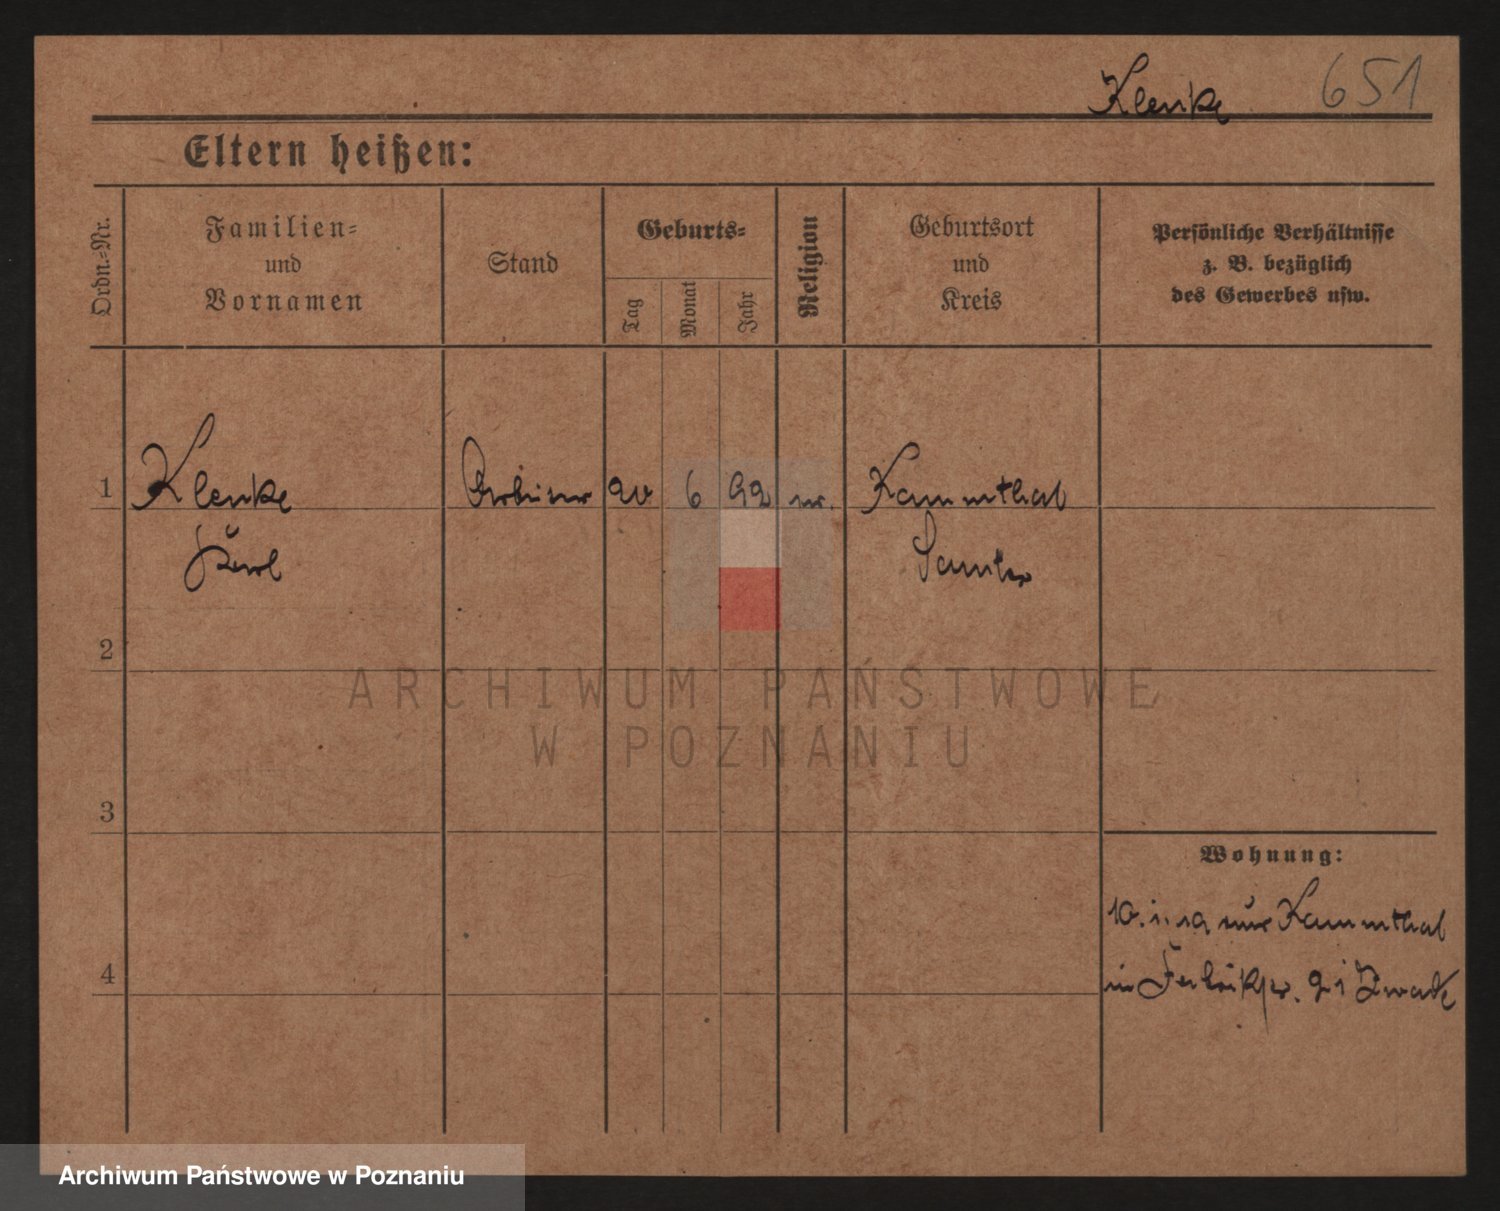 Klenke 651
Eltern heißen:
Ordn.-Nr.
Familien-
und
Vornamen
Stand
Geburts-
Tag
Monat
Jahr
Religion
Geburtsort
und
Kreis
Persönliche Verhältnisse
z. B. bezüglich
des Gewerbes usw.
1 Klenke Arbeiter 20 6 92 Kammthal
Karl Samter
2
3
4
Wohnung:
10. 1. 19 Kammthal
in
ARCHIWUM PAŃSTWOWE
W POZNANIU
Archiwum Państwowe w Poznaniu